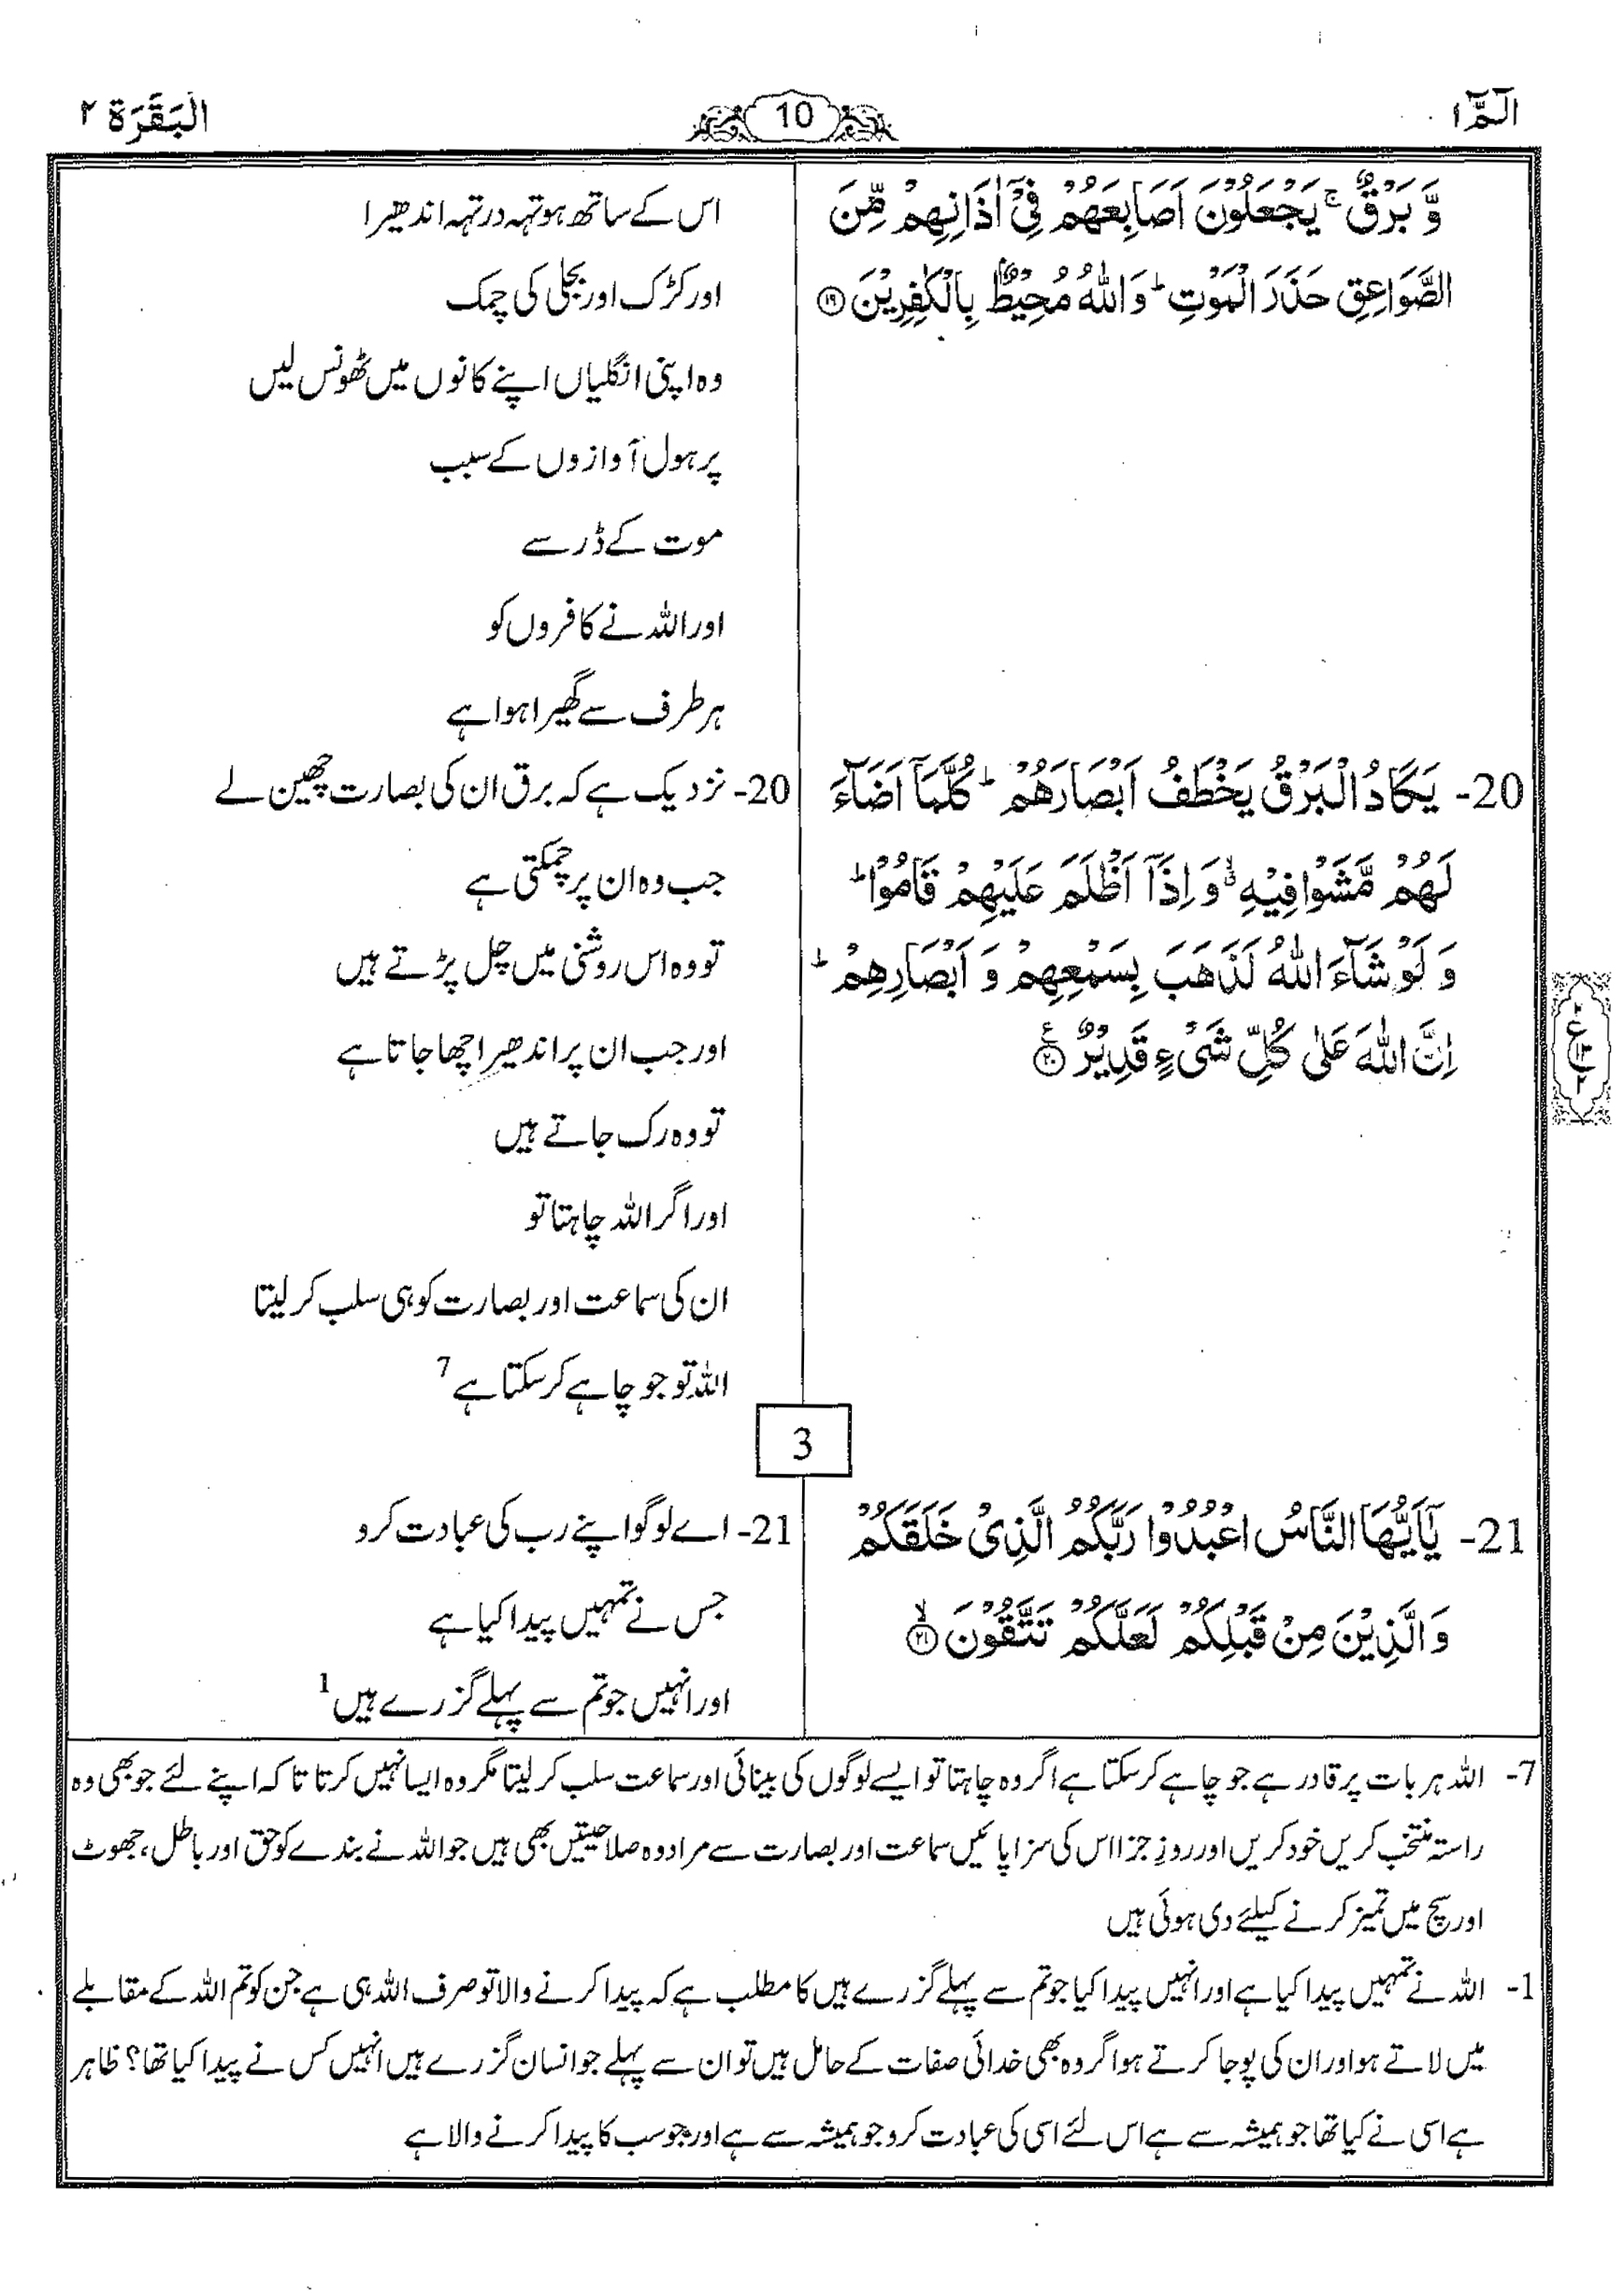 الٓمّٓ ١
10
اَلْبَقَرَة ٢
وَّ بَرْقٌ ۚ يَجْعَلُوْنَ اَصَابِعَهُمْ فِيْٓ اٰذَانِهِمْ مِّنَ
الصَّوَاعِقِ حَذَرَ الْمَوْتِ ؕ وَاللّٰهُ مُحِيْطٌۢ بِالْكٰفِرِيْنَ ﴿۱۹﴾
اس کے ساتھ ہو تہہ در تہہ اندھیرا
اور کڑک اور بجلی کی چمک
وہ اپنی انگلیاں اپنے کانوں میں ٹھونس لیں
پر ہول آوازوں کے سبب
موت کے ڈر سے
اور اللہ نے کافروں کو
ہر طرف سے گھیرا ہوا ہے
20- يَكَادُ الْبَرْقُ يَخْطَفُ اَبْصَارَهُمْ ؕ كُلَّمَآ اَضَآءَ
لَهُمْ مَّشَوْا فِيْهِ ۙ وَ اِذَآ اَظْلَمَ عَلَيْهِمْ قَامُوْا ؕ
وَ لَوْ شَآءَ اللّٰهُ لَذَهَبَ بِسَمْعِهِمْ وَ اَبْصَارِهِمْ ؕ
اِنَّ اللّٰهَ عَلٰى كُلِّ شَىْءٍ قَدِيْرٌ ﴿۲۰﴾ ع
20- نزدیک ہے کہ برق ان کی بصارت چھین لے
جب وہ ان پر چمکتی ہے
تو وہ اس روشنی میں چل پڑتے ہیں
اور جب ان پر اندھیرا چھا جاتا ہے
تو وہ رک جاتے ہیں
اور اگر اللہ چاہتا تو
ان کی سماعت اور بصارت کو ہی سلب کر لیتا
اللہ تو جو چاہے کر سکتا ہے 7
3
21- يٰٓاَيُّهَا النَّاسُ اعْبُدُوْا رَبَّكُمُ الَّذِىْ خَلَقَكُمْ
وَالَّذِيْنَ مِنْ قَبْلِكُمْ لَعَلَّكُمْ تَتَّقُوْنَ ۙ ﴿۲۱﴾
21- اے لوگو اپنے رب کی عبادت کرو
جس نے تمہیں پیدا کیا ہے
اور انہیں جو تم سے پہلے گزرے ہیں 1
7- اللہ ہر بات پر قادر ہے جو چاہے کر سکتا ہے اگر وہ چاہتا تو ایسے لوگوں کی بینائی اور سماعت سلب کر لیتا مگر وہ ایسا نہیں کرتا تا کہ اپنے لئے جو بھی وہ
راستہ منتخب کریں خود کریں اور روزِ جزا اس کی سزا پائیں سماعت اور بصارت سے مراد وہ صلاحیتیں بھی ہیں جو اللہ نے بندے کو حق اور باطل، جھوٹ
اور سچ میں تمیز کرنے کیلئے دی ہوئی ہیں
1- اللہ نے تمہیں پیدا کیا ہے اور انہیں پیدا کیا جو تم سے پہلے گزرے ہیں کا مطلب ہے کہ پیدا کرنے والا تو صرف اللہ ہی ہے جن کو تم اللہ کے مقابلے
میں لاتے ہو اور ان کی پوجا کرتے ہو اگر وہ بھی خدائی صفات کے حامل ہیں تو ان سے پہلے جو انسان گزرے ہیں انہیں کس نے پیدا کیا تھا؟ ظاہر
ہے اسی نے کیا تھا جو ہمیشہ سے ہے اس لئے اسی کی عبادت کرو جو ہمیشہ سے ہے اور جو سب کا پیدا کرنے والا ہے